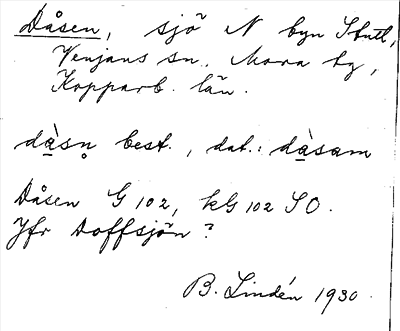 Dåsen, sjö N byn Stutt,
Venjans sn. Mora tg,
Kopparb. län.
dàsn̥ best., dat.: dàsam
Dåsen G 102, kG 102 SO.
Jfr Doffsjön?
B. Lindén 1930.